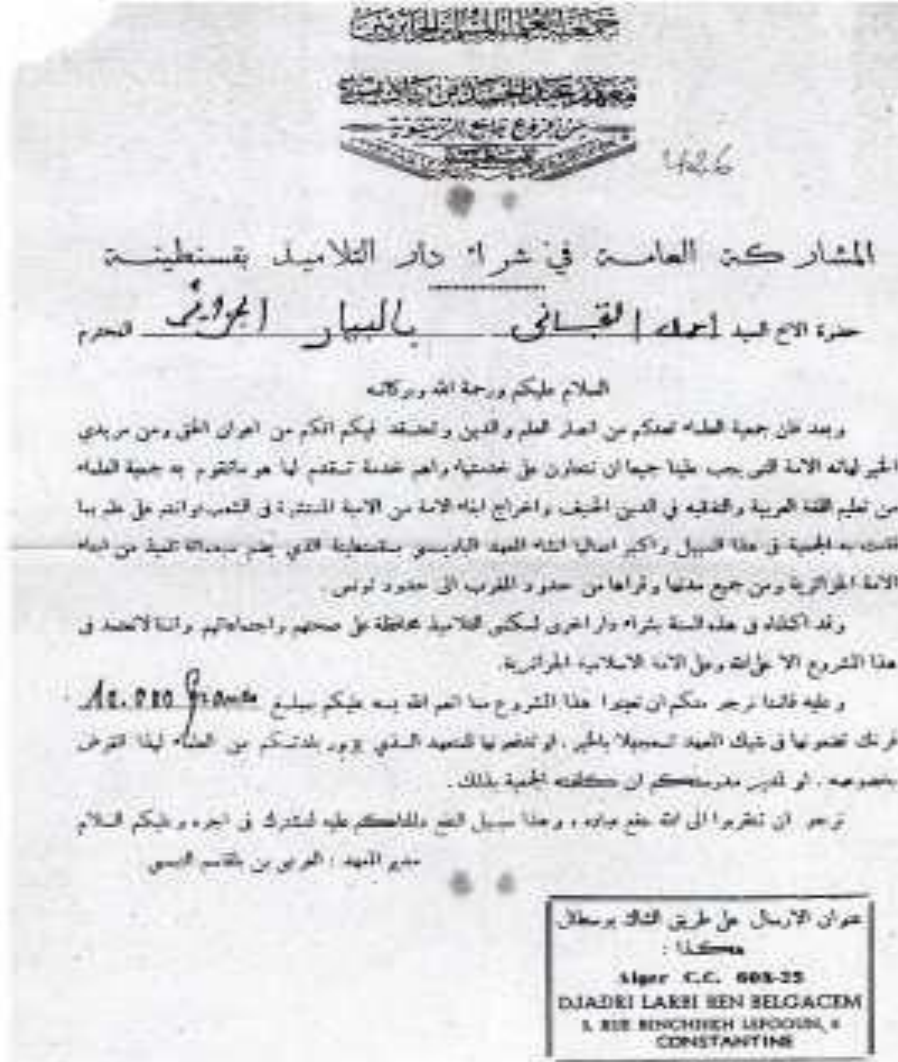 جمعية العلماء المسلمين الجزائريين
معهد عبد الحميد بن باديس
من فروع جامع الزيتونة
426
المشاركة العامة في شراء دار التلاميذ بقسنطينة
حضرة الاخ السيد احمد القباني بالبيار الجزائر المحترم
السلام عليكم ورحمة الله وبركاته
وبعد فان جمعية العلماء تعدكم من انصار العلم والدين وتعتقد فيكم انكم من اعوان الحق ومن مريدي
الخير لهاته الامة التي يجب علينا جميعا ان نتعاون على خدمتها واهم خدمة تقدم لها هو ماتقوم به جمعية العلماء
من تعليم اللغة العربية والتفقيه في الدين الحنيف واخراج ابناء الامة من الامية المنتشرة في الشعب وانتم على علم بما
قامت به الجمعية في هذا السبيل واكبر اعمالها انشاء المعهد الباديسي بقسنطينة الذي يضم سبعمائة تلميذ من ابناء
الامة الجزائرية ومن جميع مدنها وقراها من حدود المغرب الى حدود تونس .
وقد في هذه السنة بشراء دار اخرى لسكنى التلاميذ محافظة على صحتهم واجتماعاتهم واننا لانعتمد في
هذا المشروع الا على الله وعلى الامة الاسلامية الجزائرية.
وعليه فاننا نرجو منكم ان تعينوا هذا المشروع مما انعم الله به عليكم بمبلغ 10.000 francs
فرنك تضعونها في شيك المعهد تعجيلا بالخير ، او تدفعونها للمتعهد الذي يزور بلدتكم من العلماء لهذا الغرض
بخصوصه ، او لمدير مدرستكم ان كلفته الجمعية بذلك .
نرجو ان تتقربوا الى الله بنفع عباده ، وهذا سبيل النفع عليه لنشترك في اجره وعليكم السلام
مدير المعهد : العربي بن بلقاسم التبسي
عنوان الارسال على طريق الشاك بوسطال
هكذا :
Alger C.C. 608-25
DJADRI LARBI BEN BELGACEM
RUE LEFGOUN,
CONSTANTINE